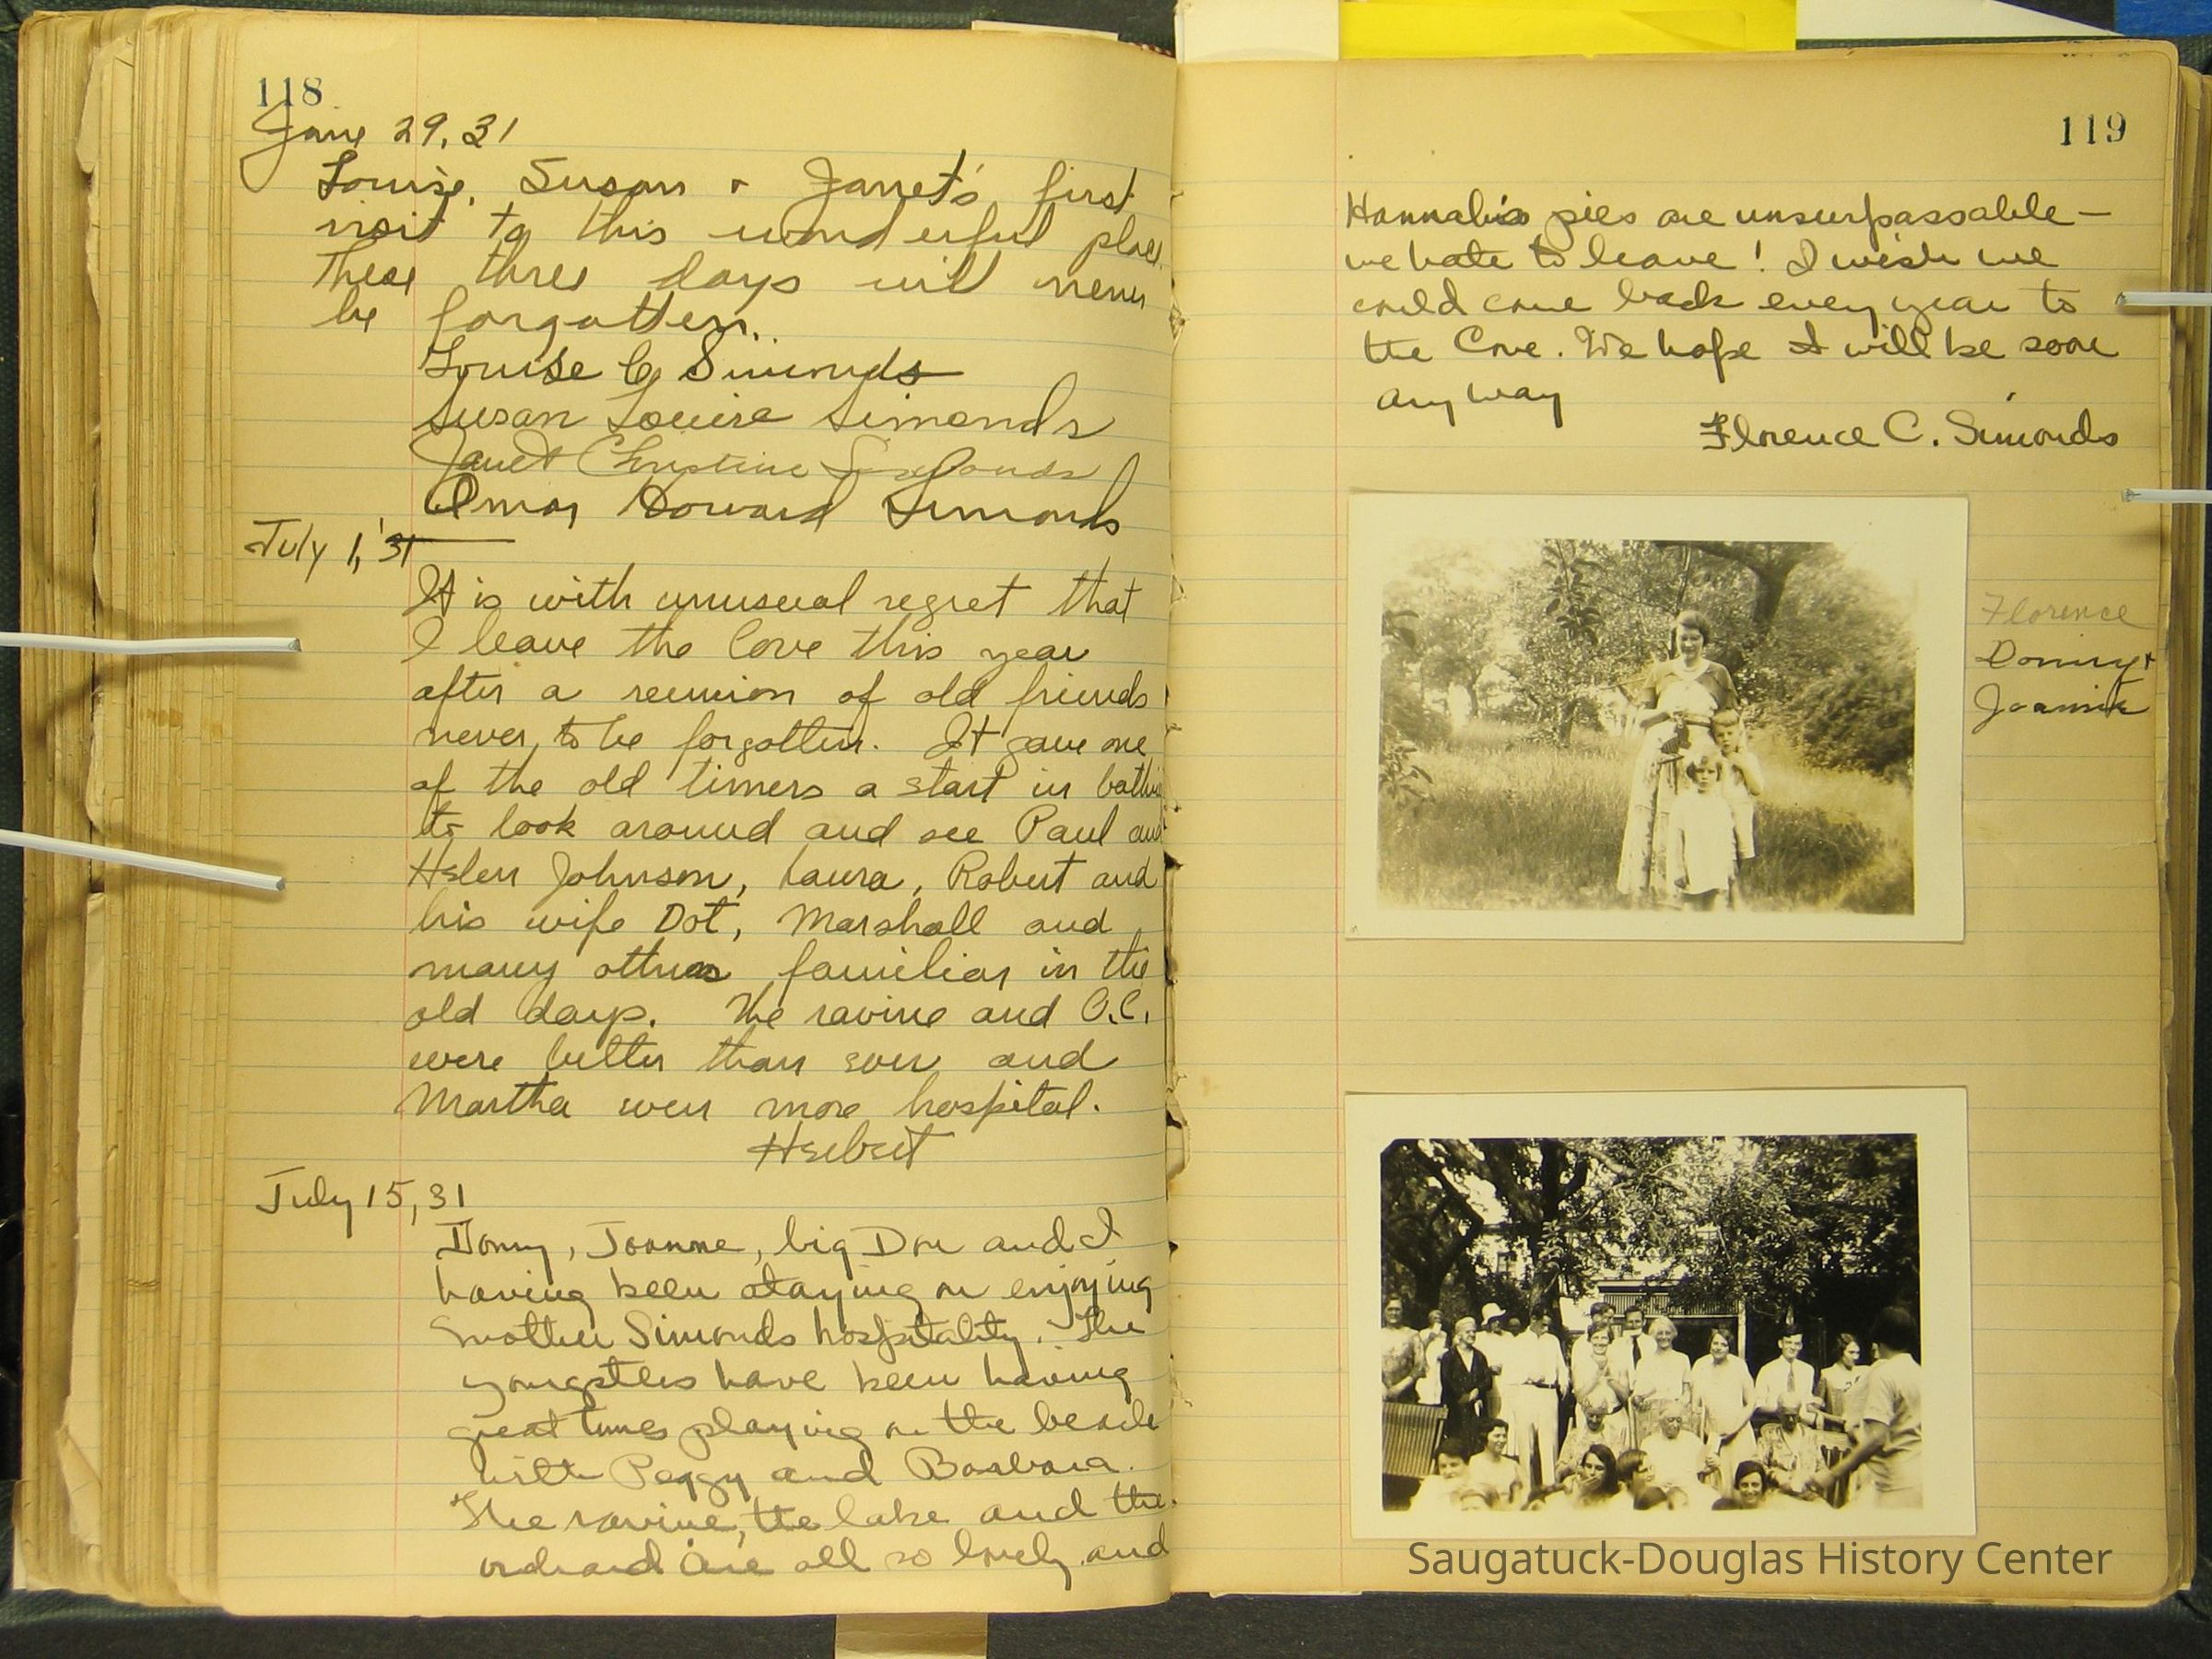 118
June 29, 31
Louise, Susan + Janet's first
visit to this wonderful place.
These three days will never
be forgotten.
Louise C Simonds
Susan Louise Simonds
Janet Christine Simonds
Howard Simonds
July 1, '31
It is with unusual regret that
I leave the Cove this year
after a reunion of old friends
never to be forgotten. It gave one
of the old timers a start in bathing
to look around and see Paul and
Helen Johnson, Laura, Robert and
his wife Dot, Marshall and
many others familiar in the
old days. The ravine and O.C.
were better than ever and
Martha ever more hospital.
Herbert
July 15, 31
Donny, Joanne, big Don and I
having been staying on enjoying
mother Simonds hospitality. The
youngsters have been having
great times playing on the beach
with Peggy and Barbara.
The ravine, the lake and the
orchard are all so lovely and
119
Hannah's pies are unsurpassable —
we hate to leave! I wish we
could come back every year to
the Cove. We hope it will be soon
any way
Florence C. Simonds
Florence
Donny +
Joanne
Saugatuck-Douglas History Center